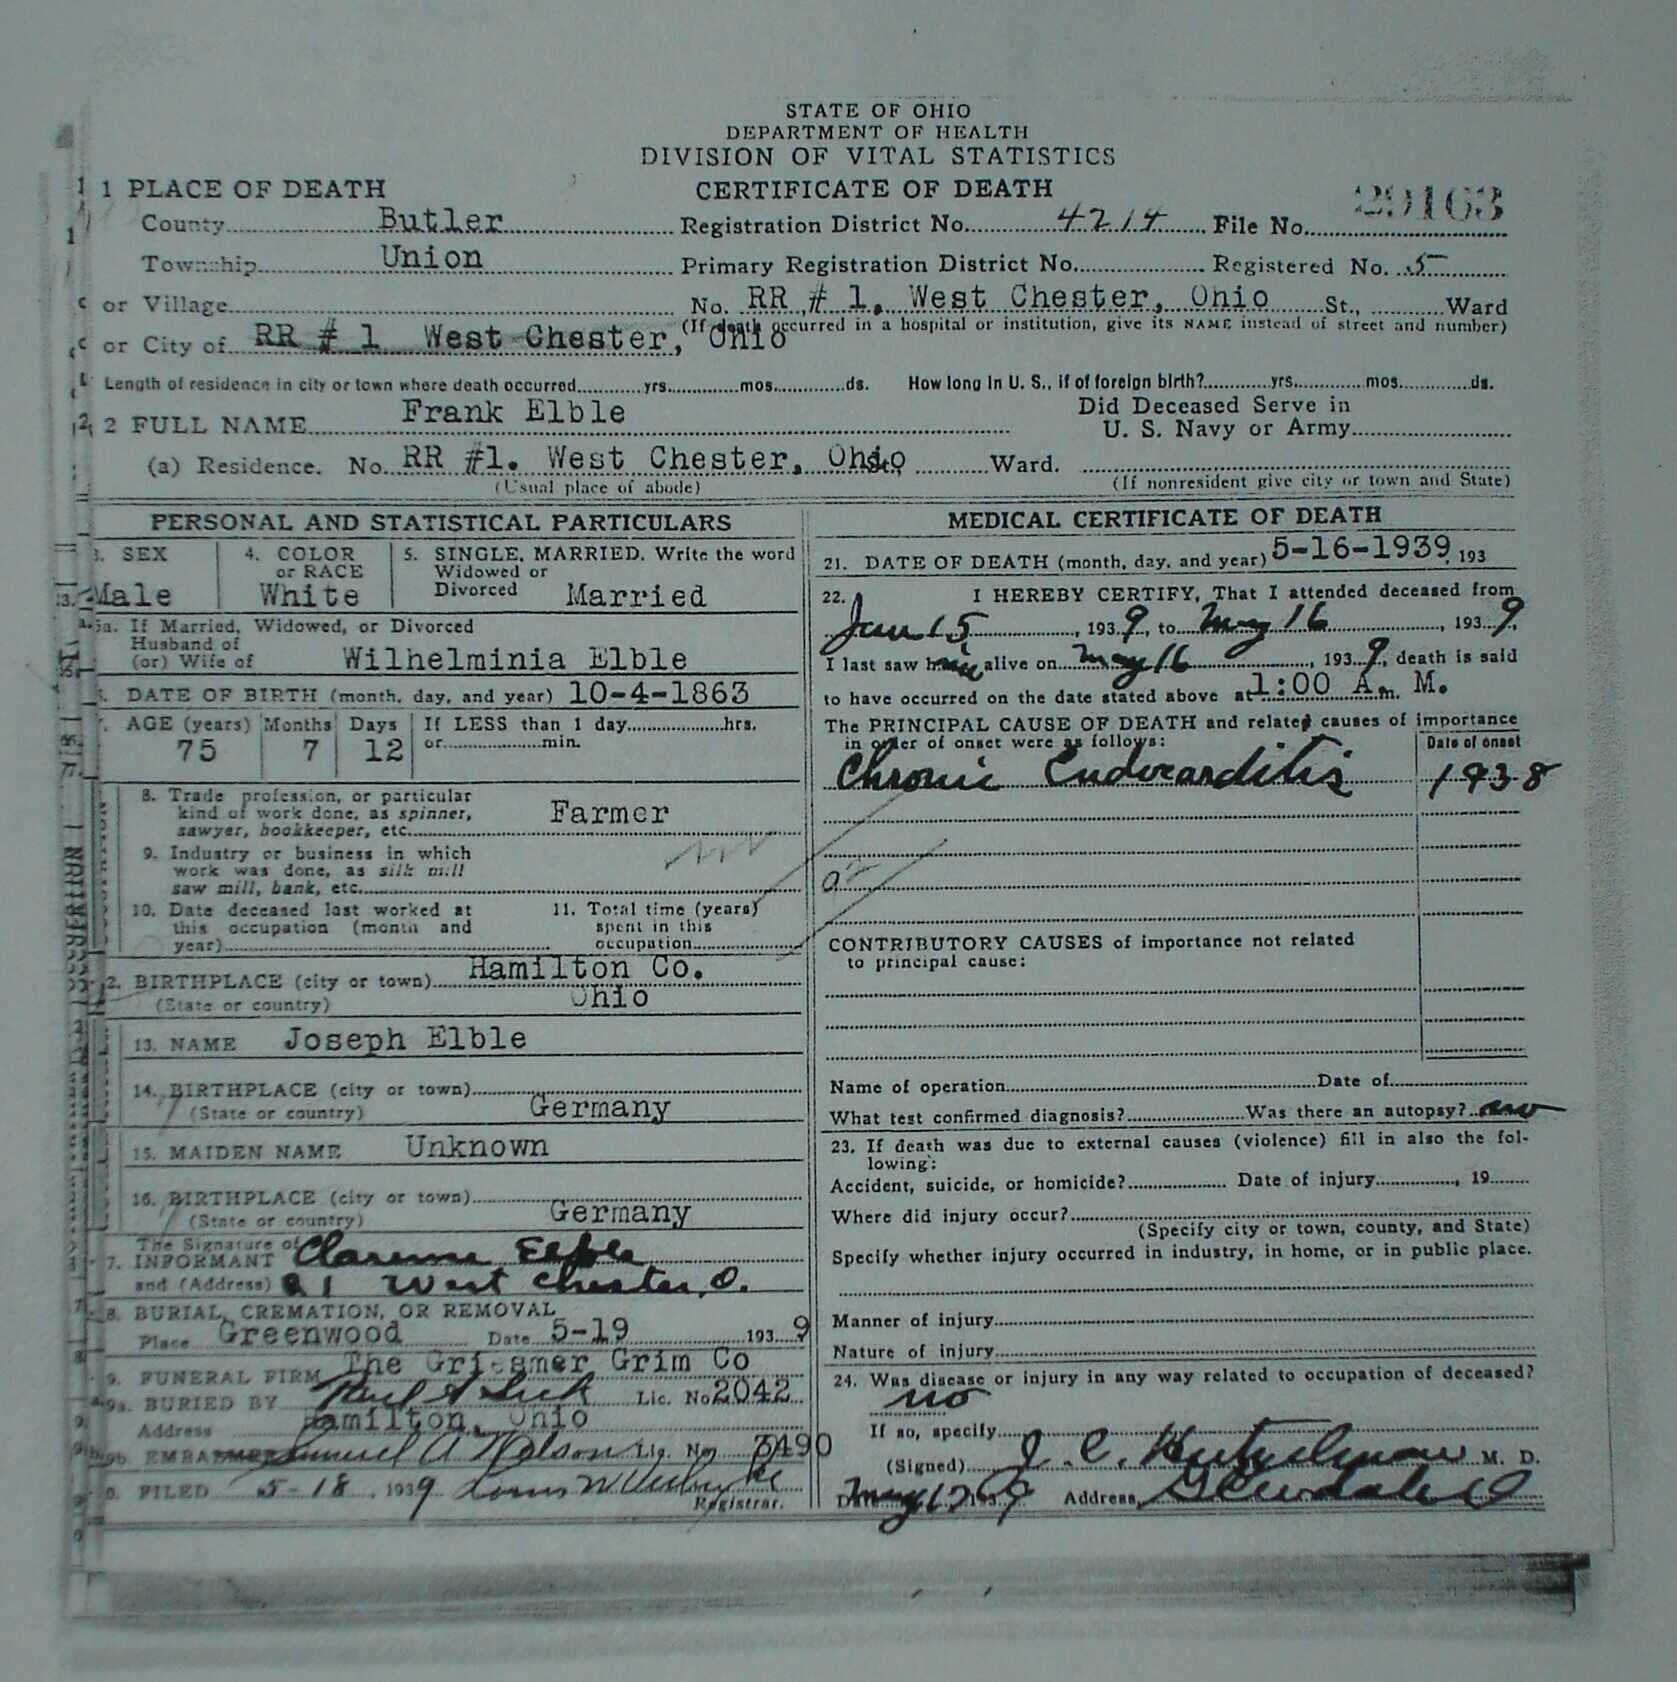 STATE OF OHIO
DEPARTMENT OF HEALTH
DIVISION OF VITAL STATISTICS
1 PLACE OF DEATH CERTIFICATE OF DEATH 29163
County Butler Registration District No. 4214 File No.
Township Union Primary Registration District No. Registered No. 5
or Village No. RR # 1, West Chester, Ohio St., Ward
(If death occurred in a hospital or institution, give its NAME instead of street and number)
or City of RR # 1 West Chester, Ohio
Length of residence in city or town where death occurred yrs. mos. ds. How long in U. S., if of foreign birth? yrs. mos. ds.
2 FULL NAME Frank Elble Did Deceased Serve in
U. S. Navy or Army
(a) Residence. No. RR #1. West Chester, Ohio St., Ward.
(Usual place of abode) (If nonresident give city or town and State)
PERSONAL AND STATISTICAL PARTICULARS
3. SEX
Male
4. COLOR
or RACE
White
5. SINGLE, MARRIED, Write the word
Widowed or
Divorced Married
5a. If Married, Widowed, or Divorced
Husband of
(or) Wife of Wilhelminia Elble
DATE OF BIRTH (month, day, and year) 10-4-1863
AGE (years) Months Days If LESS than 1 day hrs.
75 7 12 or min.
8. Trade profession, or particular
kind of work done, as spinner,
sawyer, bookkeeper, etc. Farmer
9. Industry or business in which
work was done, as silk mill
saw mill, bank, etc.
10. Date deceased last worked at
this occupation (month and
year)
11. Total time (years)
spent in this
occupation
2. BIRTHPLACE (city or town) Hamilton Co.
(State or country) Ohio
13. NAME Joseph Elble
14. BIRTHPLACE (city or town)
(State or country) Germany
15. MAIDEN NAME Unknown
16. BIRTHPLACE (city or town)
(State or country) Germany
The Signature of
7. INFORMANT Clarence Elble
and (Address) R 1 West Chester, O.
8. BURIAL, CREMATION, OR REMOVAL
Place Greenwood Date 5-19 1939
9. FUNERAL FIRM The Griesmer Grim Co
9a. BURIED BY Lic. No. 2042
Address Hamilton, Ohio
Samuel A Lic. No. 3490
0. FILED 5-18, 1939
Registrar.
MEDICAL CERTIFICATE OF DEATH
21. DATE OF DEATH (month, day, and year) 5-16-1939, 193
22. I HEREBY CERTIFY, That I attended deceased from
Jan 15, 1939, to May 16, 1939,
I last saw him alive on May 16, 1939, death is said
to have occurred on the date stated above at 1:00 A. M. m.
The PRINCIPAL CAUSE OF DEATH and related causes of importance
in order of onset were as follows: Date of onset
Chronic Endocarditis 1938
CONTRIBUTORY CAUSES of importance not related
to principal cause:
Name of operation Date of
What test confirmed diagnosis? Was there an autopsy? no
23. If death was due to external causes (violence) fill in also the fol-
lowing:
Accident, suicide, or homicide? Date of injury, 19
Where did injury occur?
(Specify city or town, county, and State)
Specify whether injury occurred in industry, in home, or in public place.
Manner of injury
Nature of injury
24. Was disease or injury in any way related to occupation of deceased?
no
If so, specify
(Signed) J. C. M. D.
May 17 1939 Address, Glendale O